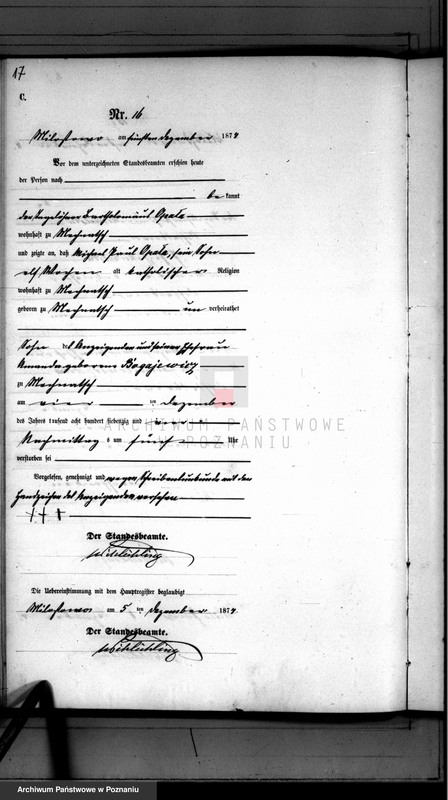 17
C.
Nr. 16
Milostowo am fünften Dezember 1874
Vor dem unterzeichneten Standesbeamten erschien heute
der Person nach
be kannt
der Tagelöhner Bartholomäus Opala
wohnhaft zu
und zeigte an, daß Michael Paul Opala, sein Sohn
elf Wochen alt katholischer Religion
wohnhaft zu
geboren zu
un verheirathet
Sohn des Anzeigenden und seiner Ehefrau
Amanda geborene Bogajewicz
zu
am vier ten Dezember
des Jahres tausend acht hundert siebenzig und vier
Nachmittag s um fünf Uhr
verstorben sei
Vorgelesen, genehmigt und wegen Schreibensunkunde mit den
Handzeichen des Anzeigenden versehen
+ + +
Der Standesbeamte.
Die Uebereinstimmung mit dem Hauptregister beglaubigt
Milostowo am 5 ten Dezember 1874
Der Standesbeamte.
ARCHIWUM PAŃSTWOWE
W POZNANIU
Archiwum Państwowe w Poznaniu